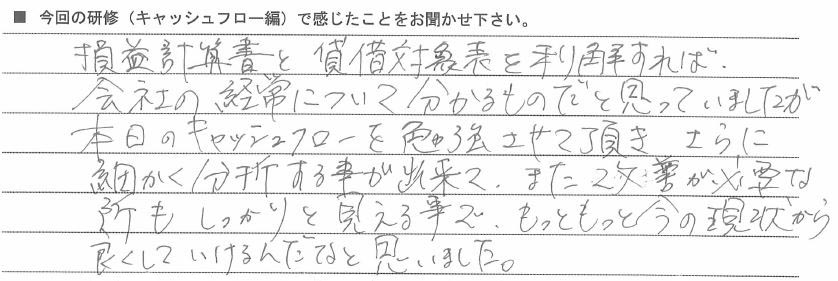 ■ 今回の研修（キャッシュフロー編）で感じたことをお聞かせ下さい。
損益計算書と貸借対象表を利解すれば、
会社の経常について分かるものだと思っていましたが
本日のキャッシュフローを勉強させて頂き さらに
細かく分析する事が出来て、また改善が必要な
所もしっかりと見える事で、もっともっと今の現状から
良くしていけるんだなと思いました。